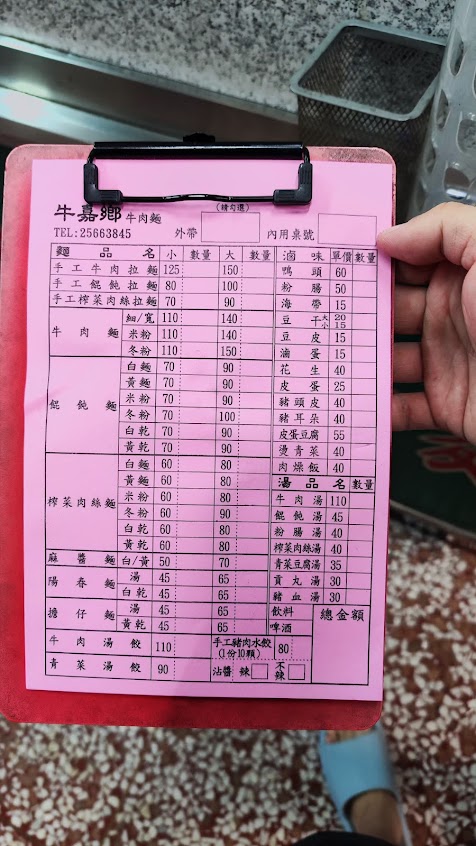 牛嘉鄉 牛肉麵 (請勾選)
TEL:25663845 外帶 內用桌號
麵品名 小 數量 大 數量 滷味 單價 數量
手工牛肉拉麵 125 150 鴨頭 60
手工餛飩拉麵 80 100 粉腸 50
手工榨菜肉絲拉麵 70 90 海帶 15
牛肉麵 細/寬 110 140 豆干 大20 小15
米粉 110 140 豆皮 15
冬粉 110 150 滷蛋 15
餛飩麵 白麵 70 90 花生 40
黃麵 70 90 皮蛋 25
米粉 70 90 豬頭皮 40
冬粉 70 100 豬耳朵 40
白乾 70 90 皮蛋豆腐 55
黃乾 70 90 燙青菜 40
榨菜肉絲麵 白麵 60 80 肉燥飯 40
黃麵 60 80 湯品名 數量
米粉 60 80 牛肉湯 110
冬粉 60 80 餛飩湯 45
白乾 60 80 粉腸湯 40
黃乾 60 80 榨菜肉絲湯 40
麻醬麵 白/黃 50 70 青菜豆腐湯 35
陽春麵 湯 45 65 貢丸湯 30
白乾 45 65 豬血湯 30
擔仔麵 湯 45 65 飲料 總金額
黃乾 45 65 啤酒
牛肉湯餃 110 手工豬肉水餃 (1份10顆) 80
青菜湯餃 90 沾醬 辣 不辣